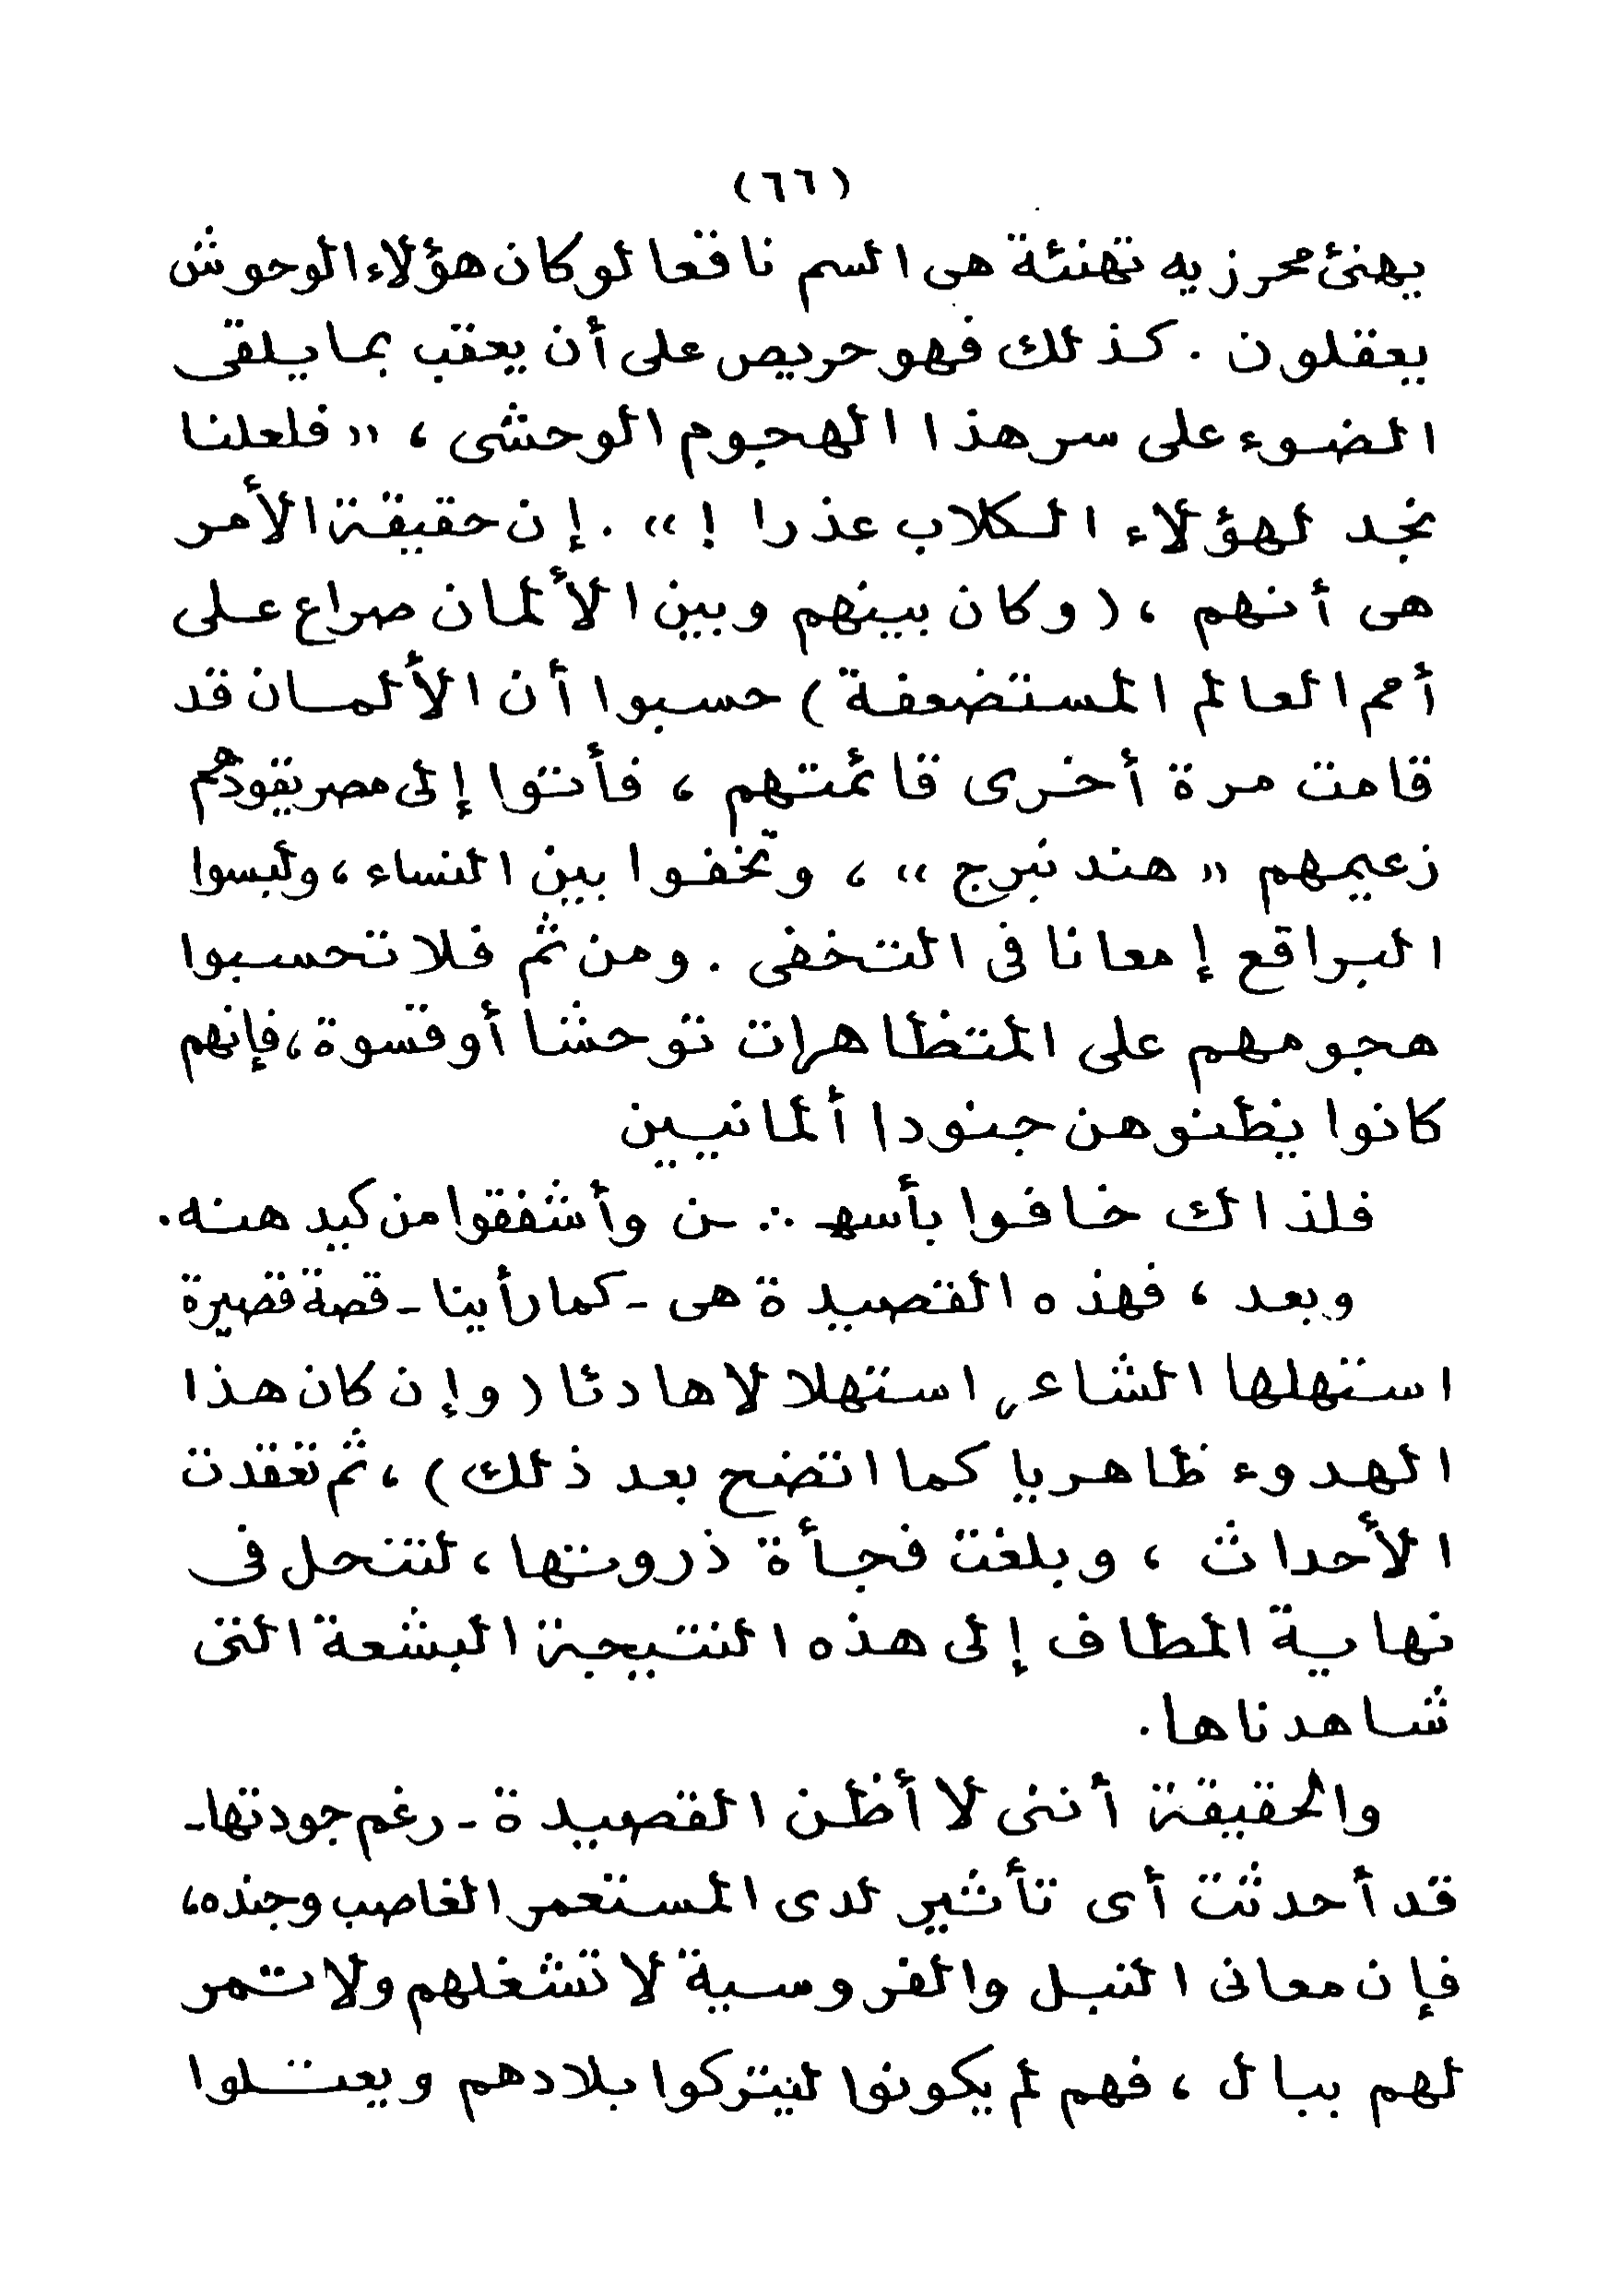 (٦٦)
يهنئ محرزيه تهنئة هى السم ناقعا لو كان هؤلاء الوحوش
يعقلون . كذلك فهو حريص على أن يعقب بما يلقى
الضوء على سر هذا الهجوم الوحشى ، « فلعلنا
نجد لهؤلاء الكلاب عذرا ! » . إن حقيقة الأمر
هى أنهم ، ( وكان بينهم وبين الألمان صراع على
أمم العالم المستضعفة ) حسبوا أن الألمان قد
قامت مرة أخرى قائمتهم ، فأتوا إلى مصر يقودهم
زعيمهم « هندنبرج » ، وتخفوا بين النساء ، ولبسوا
البراقع إمعانا فى التخفى . ومن ثم فلا تحسبوا
هجومهم على المتظاهرات توحشا أو قسوة ، فإنهم
كانوا يظنوهن جنودا ألمانيين
فلذاك خافوا بأسهـ ∴ ـن وأشفقوا من كيدهنه .
وبعد ، فهذه القصيدة هى - كما رأينا - قصة قصيرة
استهلها الشاعر استهلالا هادئا ( وإن كان هذا
الهدوء ظاهريا كما اتضح بعد ذلك ) ، ثم تعقدت
الأحداث ، وبلغت فجأة ذروتها ، لتنحل فى
نهاية المطاف إلى هذه النتيجة البشعة التى
شاهدناها .
والحقيقة أننى لا أظن القصيدة - رغم جودتها -
قد أحدثت أى تأثير لدى المستعمر الغاصب وجنده ،
فإن معانى النبل والفروسية لا تشغلهم ولا تمر
لهم ببال ، فهم لم يكونوا ليتركوا بلادهم ويعتلوا